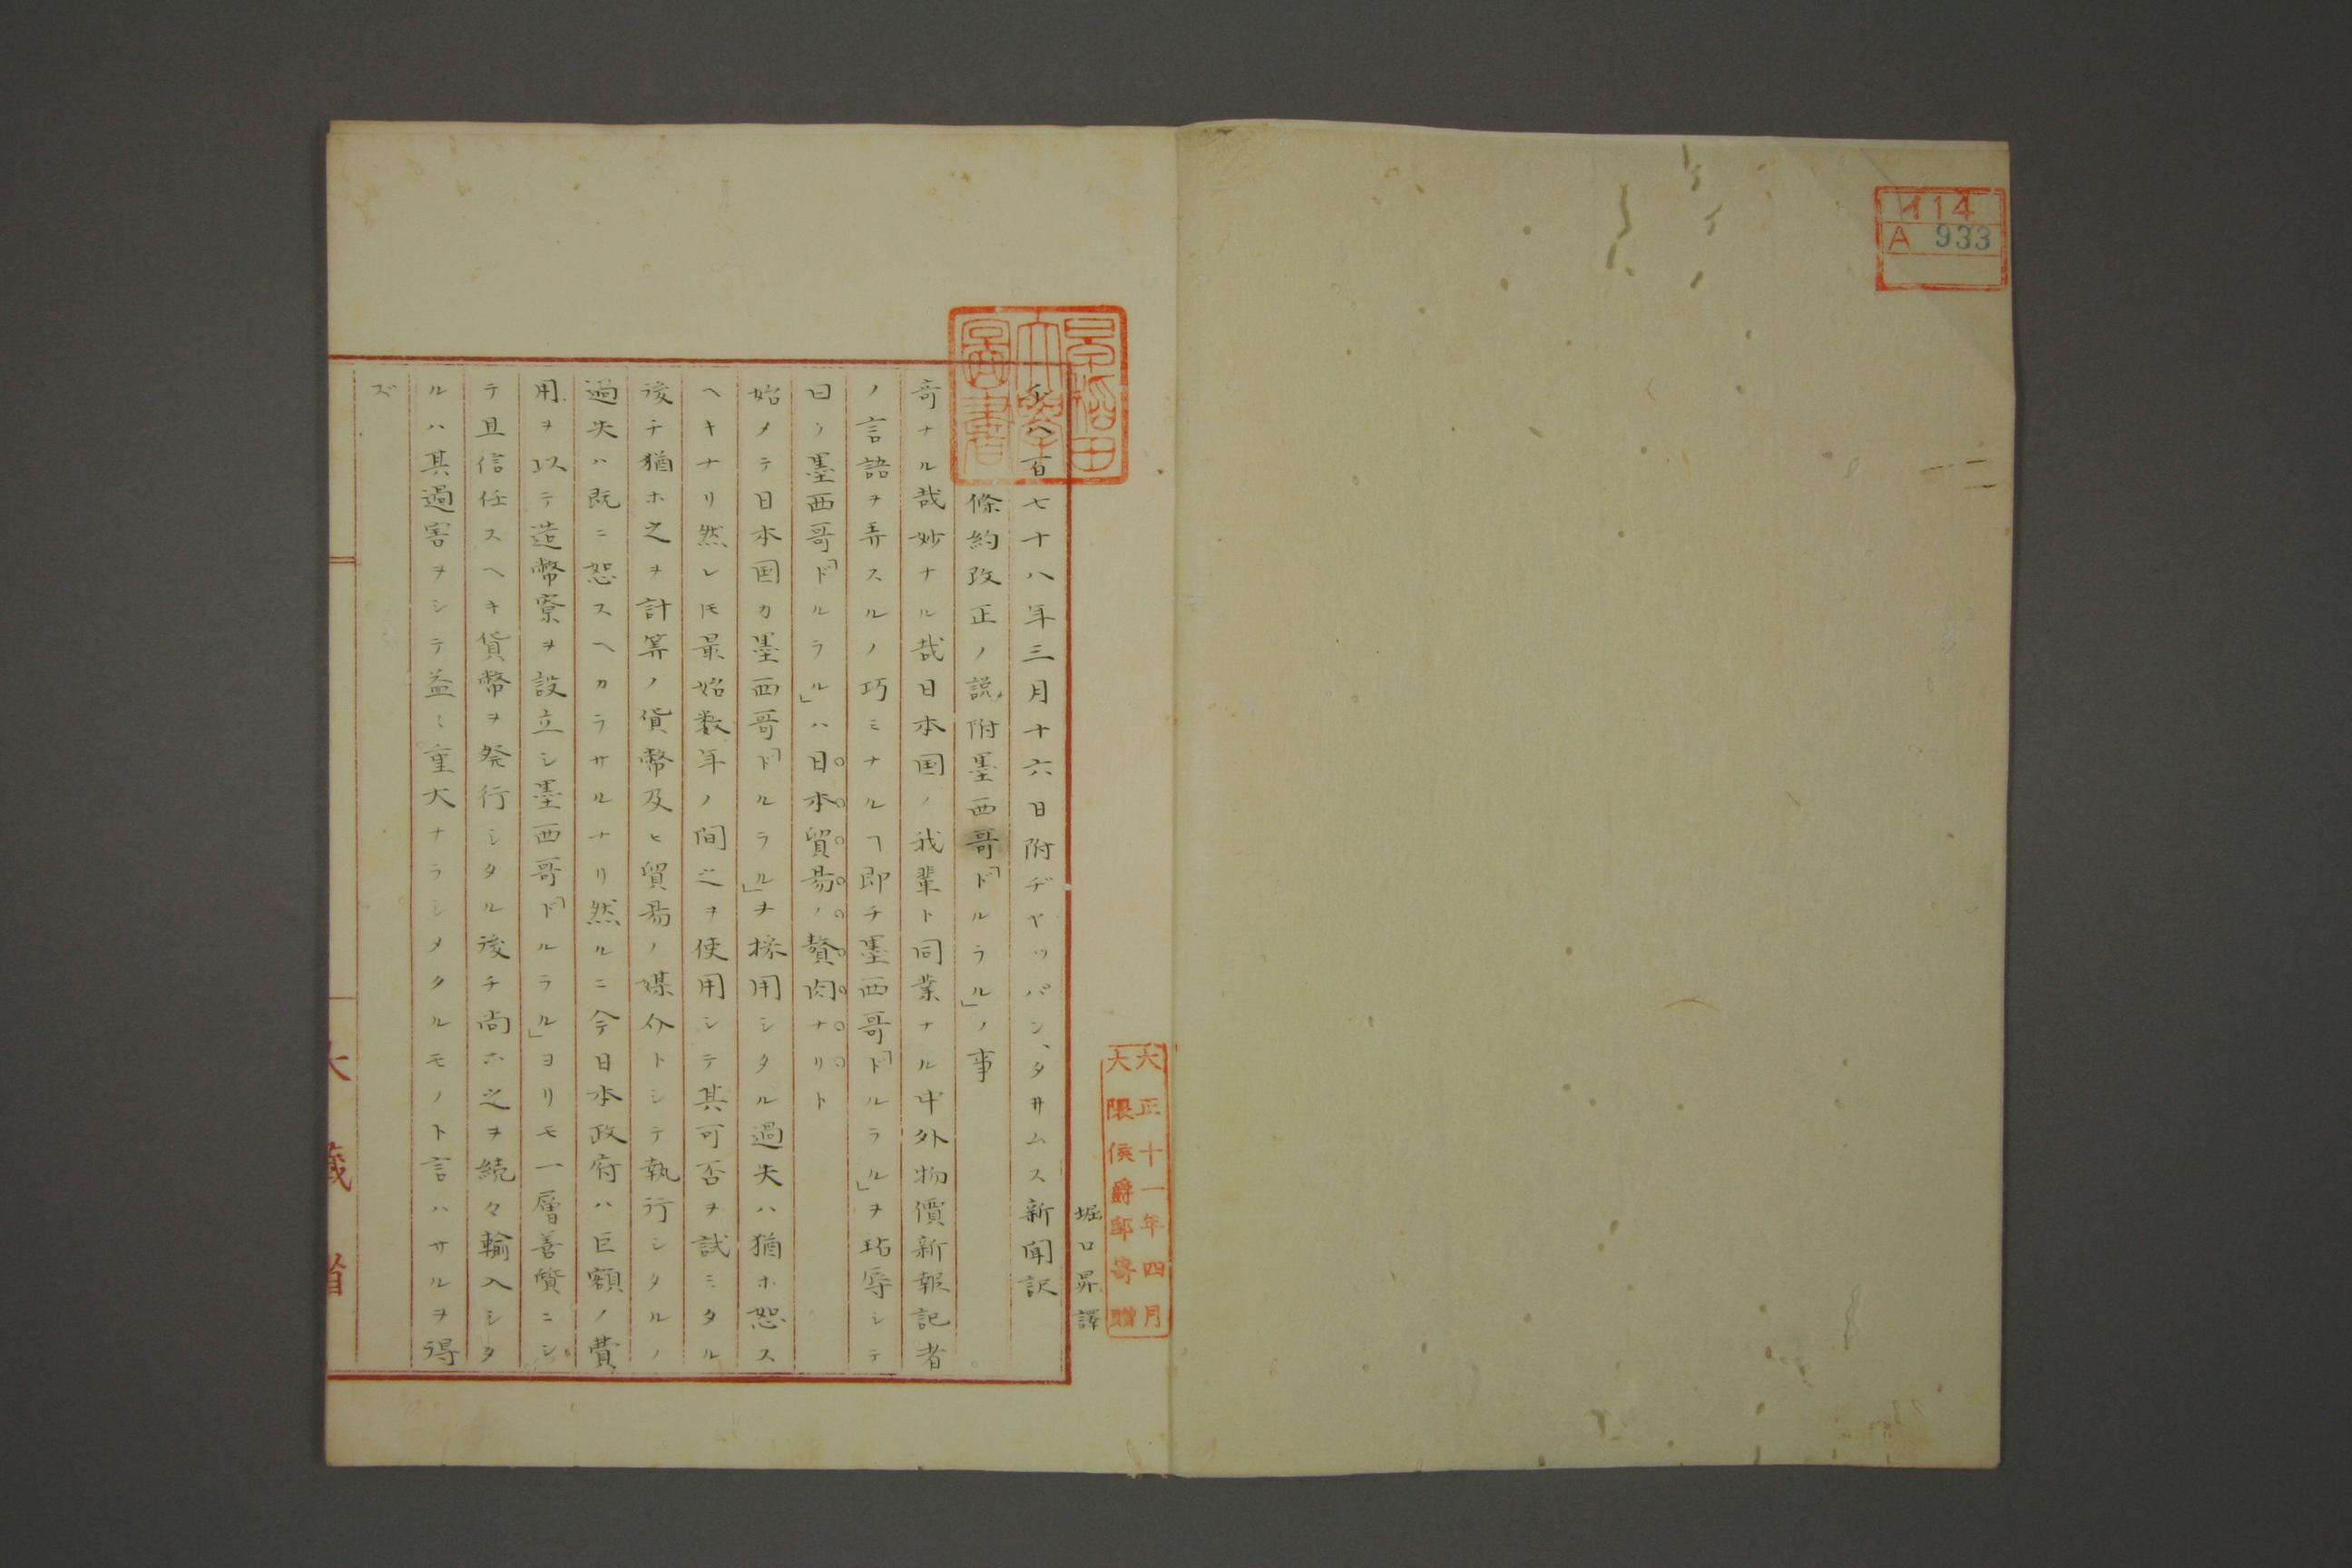 114
A 933
大正十一年四月
大隈侯爵邸寄贈
早稲田
大學
圖書
堀口昇譯
千八百七十八年三月十六日附ヂヤッパン、タイムス新聞訳
條約改正ノ説附墨西哥「ドルラル」ノ事
奇ナル哉妙ナル哉日本国ノ我輩ト同業ナル中外物價新報記者
ノ言語ヲ弄スルノ巧ミナルヿ即チ墨西哥「ドルラル」ヲ玷辱シテ
曰ク墨西哥「ドルラル」ハ日本貿易ノ贅肉ナリト
始メテ日本国カ墨西哥「ドルラル」ヲ採用シタル過失ハ猶ホ恕ス
ヘキナリ然レ𪜈最始数年ノ間之ヲ使用シテ其可否ヲ試ミタル
後チ猶ホ之ヲ計筭ノ貨幣及ヒ貿易ノ媒介トシテ執行シタルノ
過失ハ既ニ恕スヘカラサルナリ然ルニ今日本政府ハ巨額ノ費
用ヲ以テ造幣寮ヲ設立シ墨西哥「ドルラル」ヨリモ一層善質ニシ
テ且信任スヘキ貨幣ヲ発行シタル後チ尚ホ之ヲ続々輸入シタ
ルハ其過害ヲシテ益〻重大ナラシメタルモノト言ハサルヲ得
ズ
大藏省